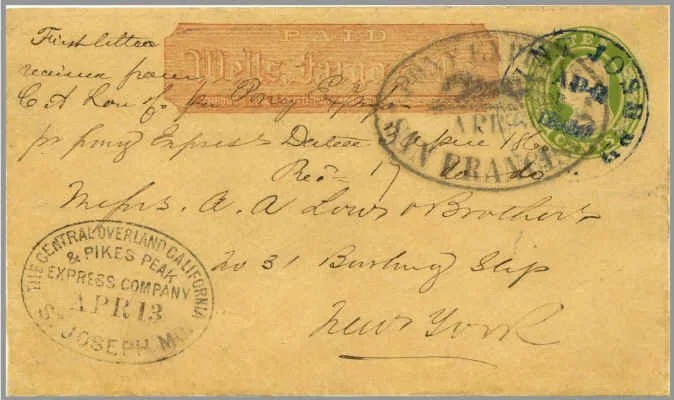 PAID
Wells, Fargo
First letter
received from
C A Low & Co pr Pony Express
pr pony Express Dated April 186
Rec. 17 do do
Messrs. A. A. Low & Brothers
31 Burling Slip
New York
PONY EXPRESS
APR
SAN FRANCISCO
ST JOS
APR
THE CENTRAL OVERLAND CALIFORNIA
& PIKES PEAK
EXPRESS COMPANY
APR 13
ST. JOSEPH MO.